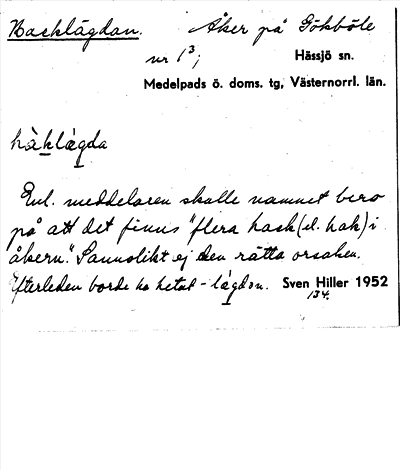 Backlägdan. Åker på Gökböle
nr 1³,
Hässjö sn.
Medelpads ö. doms. tg, Västernorrl. län.
hàk̲lä̀gda
Enl. meddelaren skulle namnet bero
på att det finns "flera hack (el. hak) i
åkern." Sannolikt ej den rätta orsaken.
Efterleden borde ha hetat -lägdan. Sven Hiller 1952
134.